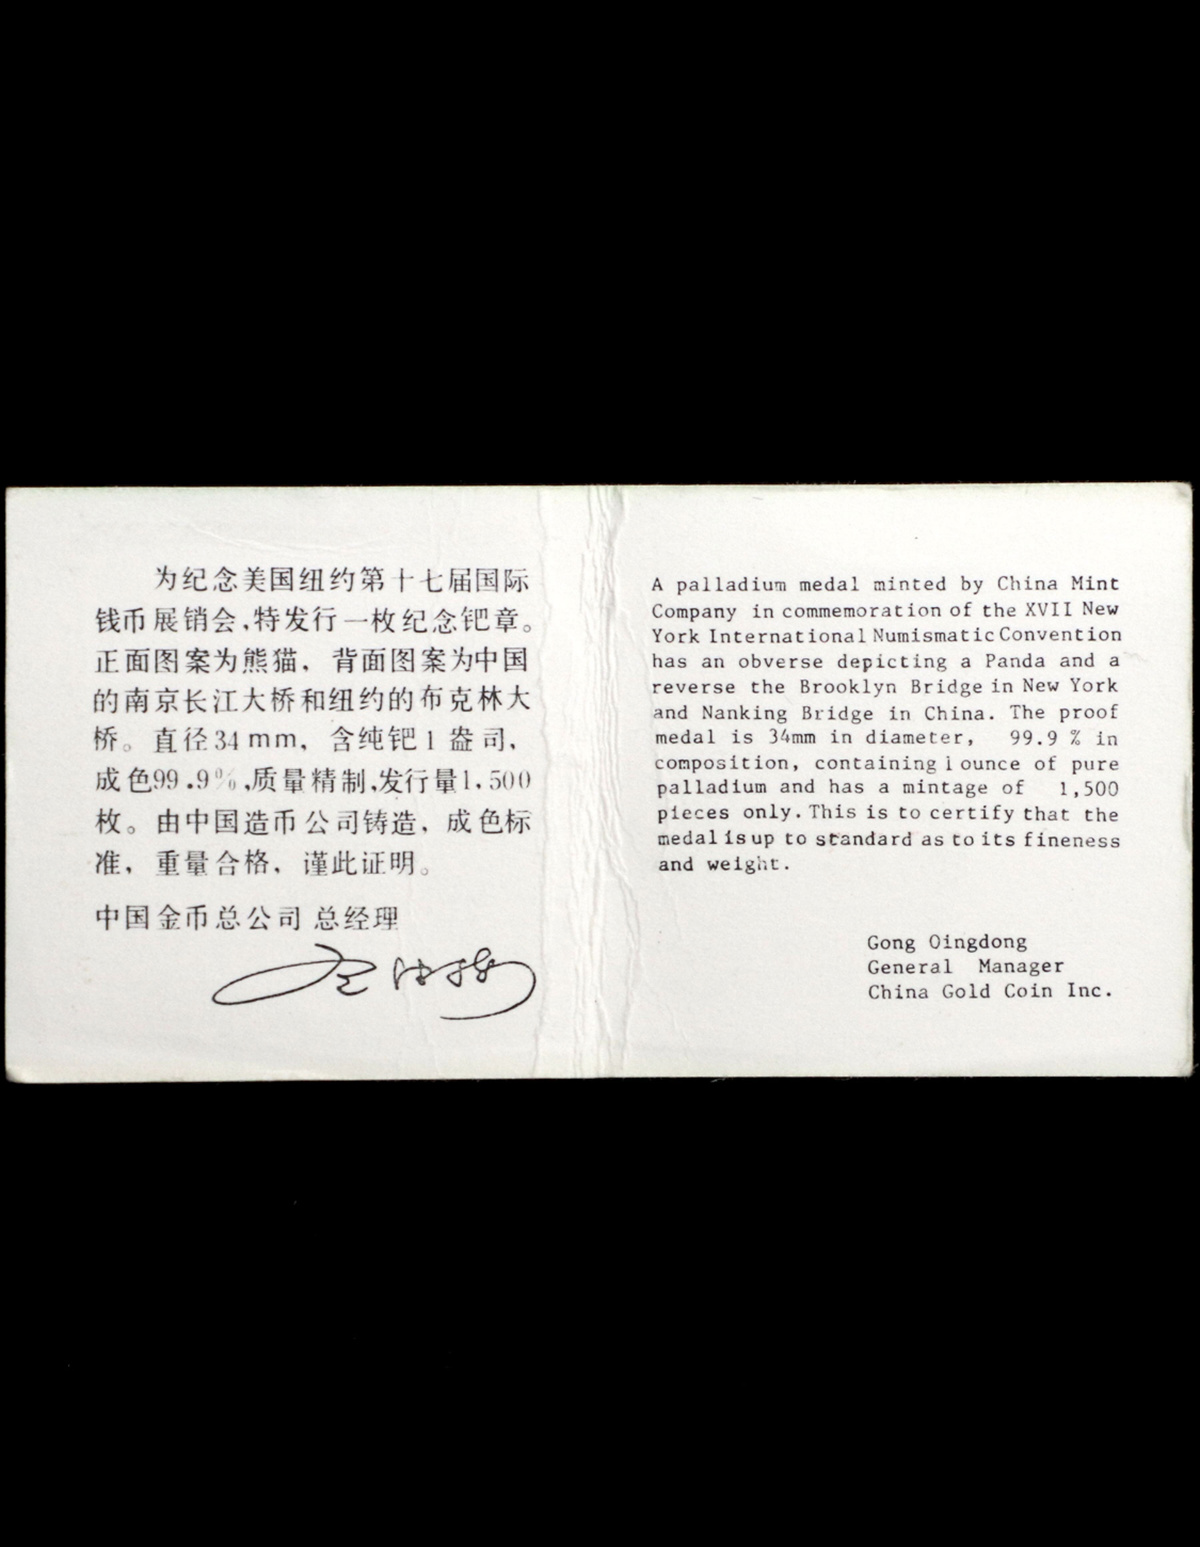 为纪念美国纽约第十七届国际
钱币展销会,特发行一枚纪念钯章。
正面图案为熊猫，背面图案为中国
的南京长江大桥和纽约的布克林大
桥。直径34mm，含纯钯1盎司，
成色99.9%,质量精制,发行量1,500
枚。由中国造币公司铸造，成色标
准，重量合格，谨此证明。
中国金币总公司 总经理
A palladium medal minted by China Mint
Company in commemoration of the XVII New
York International Numismatic Convention
has an obverse depicting a Panda and a
reverse the Brooklyn Bridge in New York
and Nanking Bridge in China. The proof
medal is 34mm in diameter, 99.9 % in
composition, containing 1 ounce of pure
palladium and has a mintage of 1,500
pieces only. This is to certify that the
medal is up to standard as to its fineness
and weight.
Gong Oingdong
General Manager
China Gold Coin Inc.